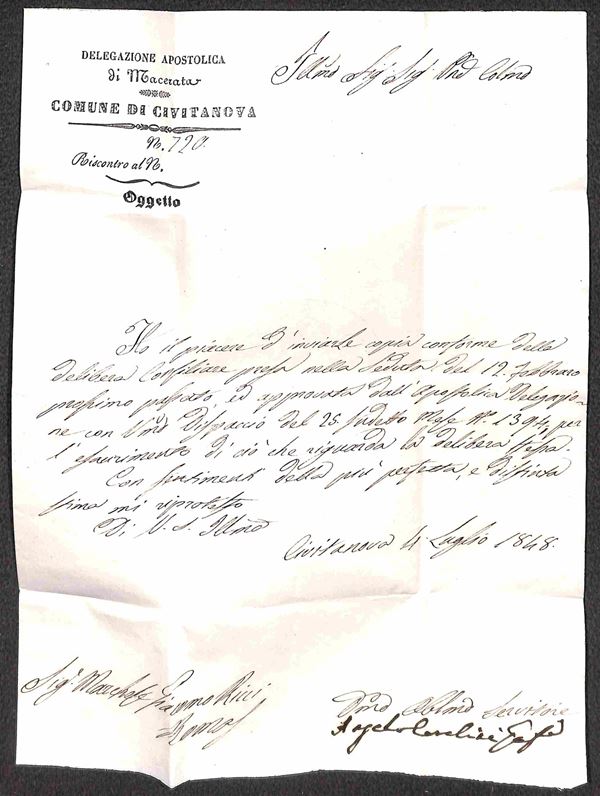 DELEGAZIONE APOSTOLICA
di Macerata
COMUNE DI CIVITANOVA
N. 720.
Riscontro al N.
Oggetto
Illmo Sig. Sig. Pnd Colmo
Ho il piacere d'inviarle copia conforme della
delibera Consiliare presa nella Seduta del 12 Febbraro
prossimo passato, ed approvata dall'Apostolica Delegazio-
ne con Dispaccio del 25 sudetto Mese N. 1394, per
l'esaurimento di ciò che riguarda la delibera stessa.
Con sentimenti della più perfetta, e distinta
stima mi riprotesto
Di V. S. Illma
Civitanova 4 Luglio 1848.
Sig. Marchese Ricci
Roma
Obblmo Servitore